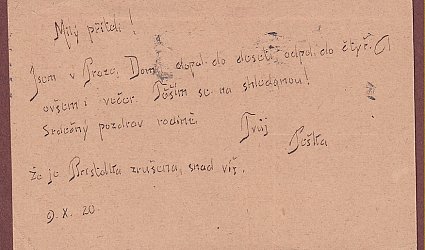 Milý příteli!
Jsem v Praze. Doma dopol. do deseti, odpol. do čtyř. A
ovšem i večer. Těším se na shledanou!
Srdečný pozdrav rodině.
Tvůj
Peška
Že je Beseda zrušena, snad víš.
9. X. 20.